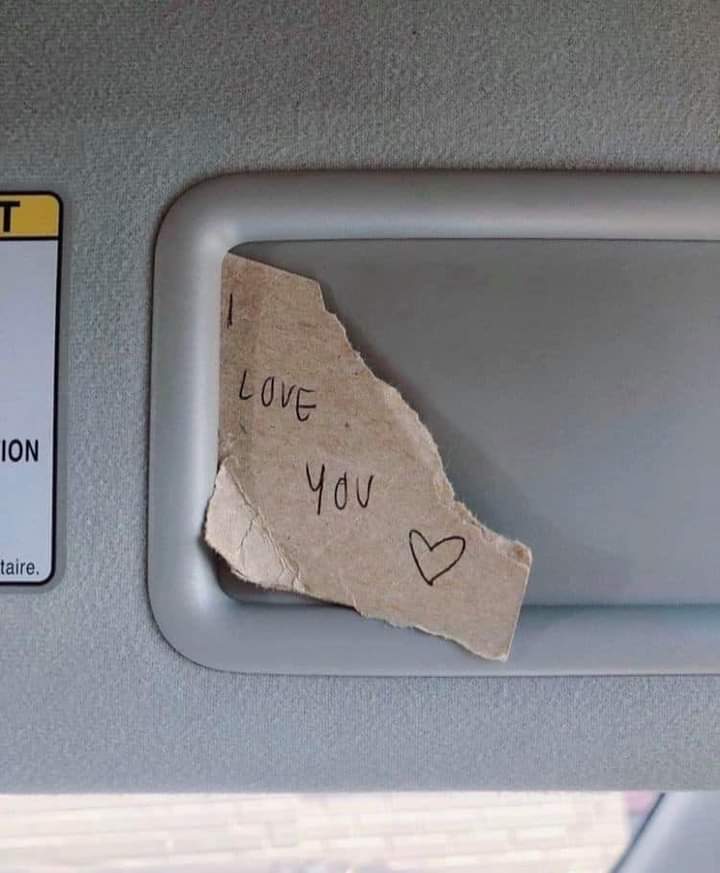 T
ION
taire.
I
LOVE
YOU
♡